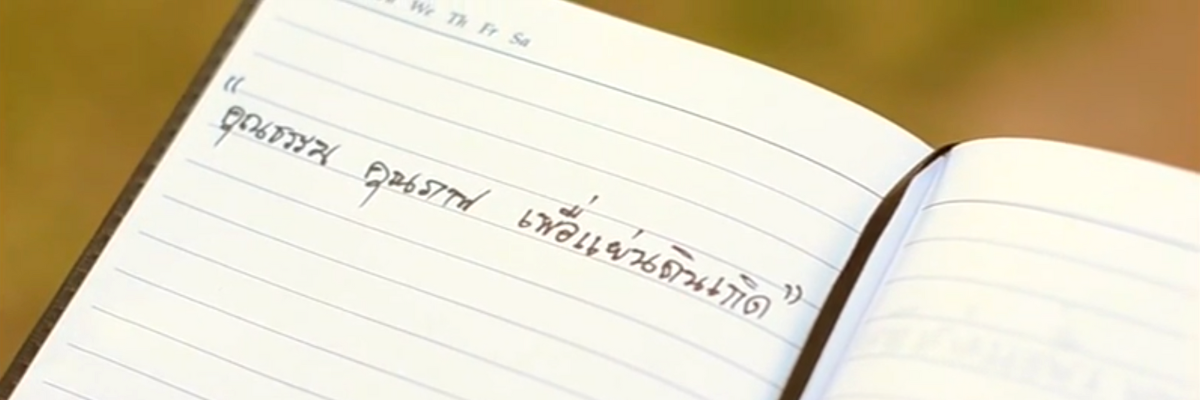 We Th Fr Sa
“คุณธรรม คุณภาพ เพื่อแผ่นดินเกิด”